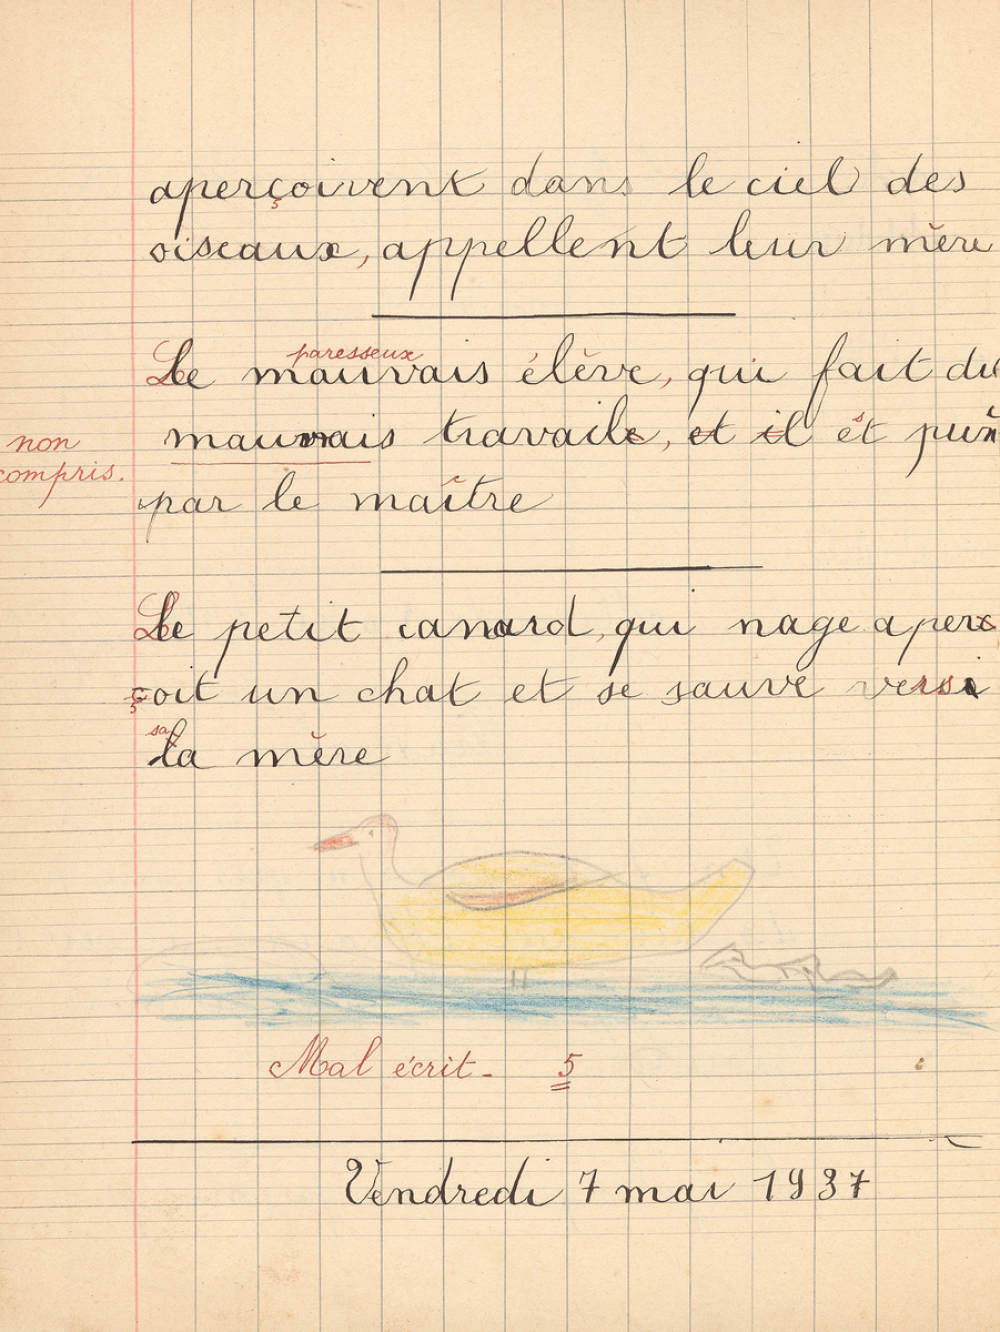 aperçoivent dans le ciel des
oiseaux, appellent leur mère
paresseux
Le mauvais élève, qui fait du
non
mauvais travail, et il est puni
compris.
par le maître
Le petit canard, qui nage aper
çoit un chat et se sauve vers
sa
la mère
Mal écrit - 5
Vendredi 7 mai 1937